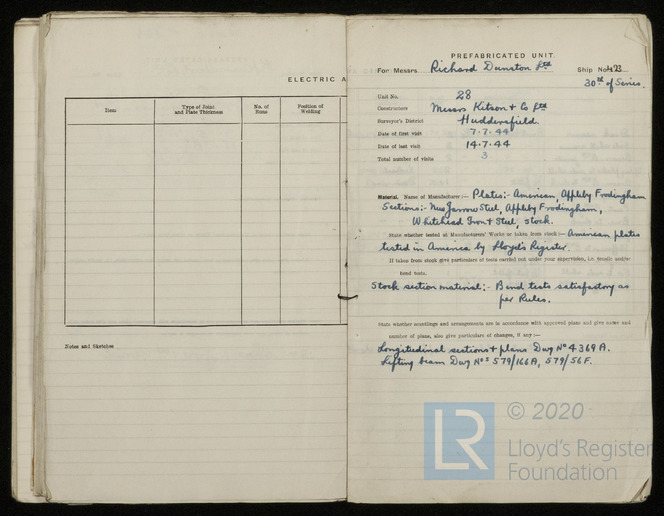 ELECTRIC A
Item
Type of Joint and Plate Thickness
No. of Runs
Position of Welding
Notes and Sketches
PREFABRICATED UNIT
For Messrs Richard Dunston Ltd Ship No
30th of Series.
Unit No. 28
Constructors Messrs Kitson & Co Ltd
Surveyor's District Huddersfield.
Date of first visit 7.7.44
Date of last visit 14.7.44
Total number of visits 3
Material. Name of Manufacturer:— Plates:- American, Appleby Frodingham
Sections:- New Jarrow Steel, Appleby Frodingham,
Whitehead Iron & Steel, stock.
State whether tested at Manufacturers' Works or taken from stock:— American plates
tested in America by Lloyd's Register.
If taken from stock give particulars of tests carried out under your supervision, i.e. tensile and/or
bend tests.
Stock section material:- Bend tests satisfactory as
per Rules.
State whether scantlings and arrangements are in accordance with approved plans and give name and
number of plans, also give particulars of changes, if any:—
Longitudinal sections & plans Dwg No 4369A.
Lifting beam Dwg Nos 579/166A, 579/56F.
LR
© 2020
Lloyd's Register
Foundation